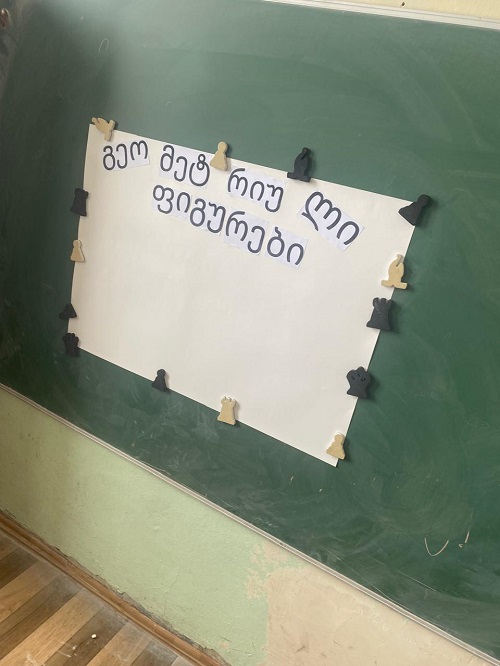 გეო მეტ რიუ ლი
ფიგურები